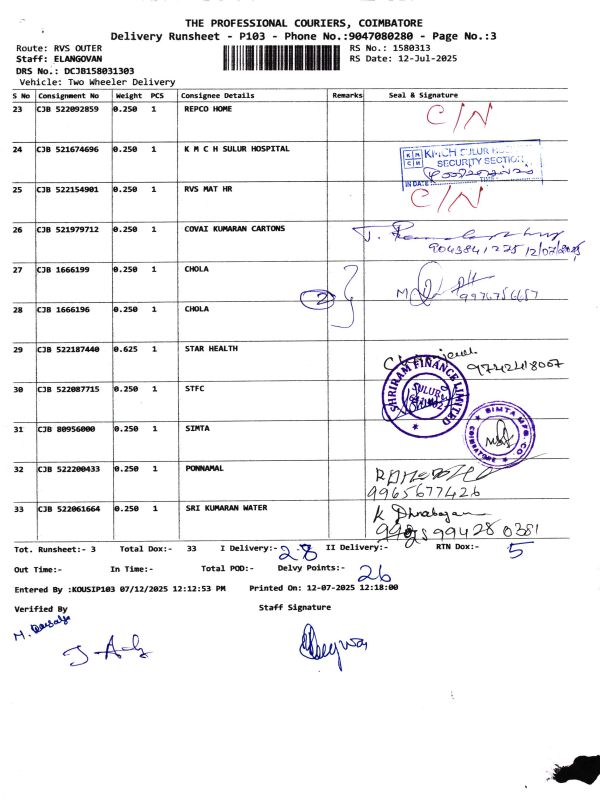 THE PROFESSIONAL COURIERS, COIMBATORE
Delivery Runsheet - P103 - Phone No.:9047080280 - Page No.:3
Route: RVS OUTER RS No.: 1580313
Staff: ELANGOVAN RS Date: 12-Jul-2025
DRS No.: DCJB158031303
Vehicle: Two Wheeler Delivery
S No Consignment No Weight PCS Consignee Details Remarks Seal & Signature
23 CJB 522092859 0.250 1 REPCO HOME C/N
24 CJB 521674696 0.250 1 K M C H SULUR HOSPITAL
KMCH SULUR
SECURITY SECTION
IN DATE TIME
25 CJB 522154901 0.250 1 RVS MAT HR C/N
26 CJB 521979712 0.250 1 COVAI KUMARAN CARTONS
9043841225 12/07/2025
27 CJB 1666199 0.250 1 CHOLA
2
9976756657
28 CJB 1666196 0.250 1 CHOLA
29 CJB 522187440 0.625 1 STAR HEALTH
9742418007
30 CJB 522087715 0.250 1 STFC
SHRIRAM FINANCE LIMITED
SULUR
31 CJB 80956000 0.250 1 SIMTA
SIMTA MFG. CO.
32 CJB 522200433 0.250 1 PONNAMAL
9965677426
33 CJB 522061664 0.250 1 SRI KUMARAN WATER
K Dhnabagam
99428 0381
Tot. Runsheet:- 3 Total Dox:- 33 I Delivery:- 28 II Delivery:- RTN Dox:- 5
Out Time:- In Time:- Total POD:- Delvy Points:- 26
Entered By :KOUSIP103 07/12/2025 12:12:53 PM Printed On: 12-07-2025 12:18:00
Verified By Staff Signature